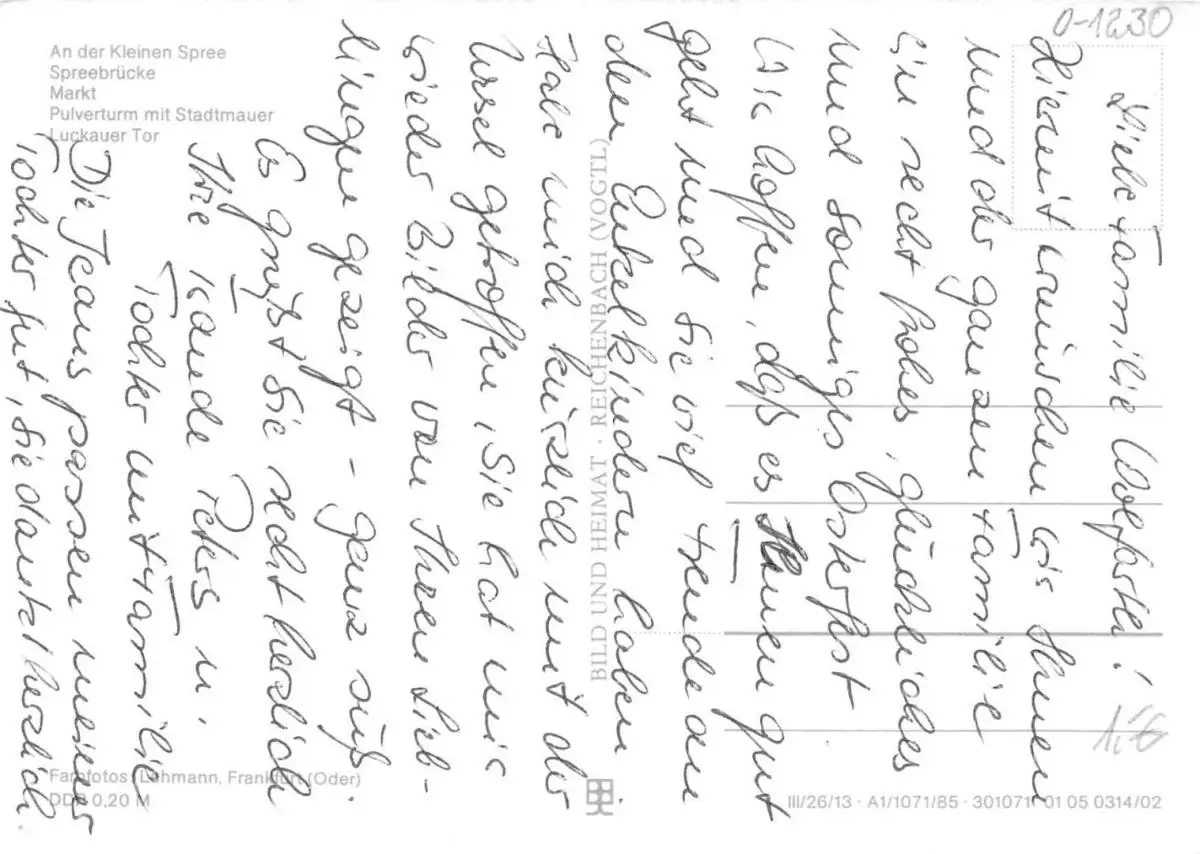 An der Kleinen Spree
Spreebrücke
Markt
Pulverturm mit Stadtmauer
Luckauer Tor
0-1230
Liebe Familie Wolfarth!
Hiermit wünschen wir Ihnen
und der ganzen Familie
ein recht frohes, glückliches
und sonniges Osterfest
Wir hoffen, daß es Ihnen gut
geht und Sie viel Freude an
den Enkelkindern haben.
Habe mich kürzlich mit der
Ursel getroffen, Sie hat mir
wieder Bilder von Ihren Lieb-
lingen gezeigt - ganz süß.
Es grüßt Sie recht herzlich
Ihre Peters u.
Tochter mit Familie
Die Jeans passen meiner
Tochter gut, sie dankt herzlich.
BILD UND HEIMAT · REICHENBACH (VOGTL)
Farbfotos: Lehmann, Frankfurt (Oder)
DDR 0,20 M
III/26/13 · A1/1071/85 · 301071 01 05 0314/02